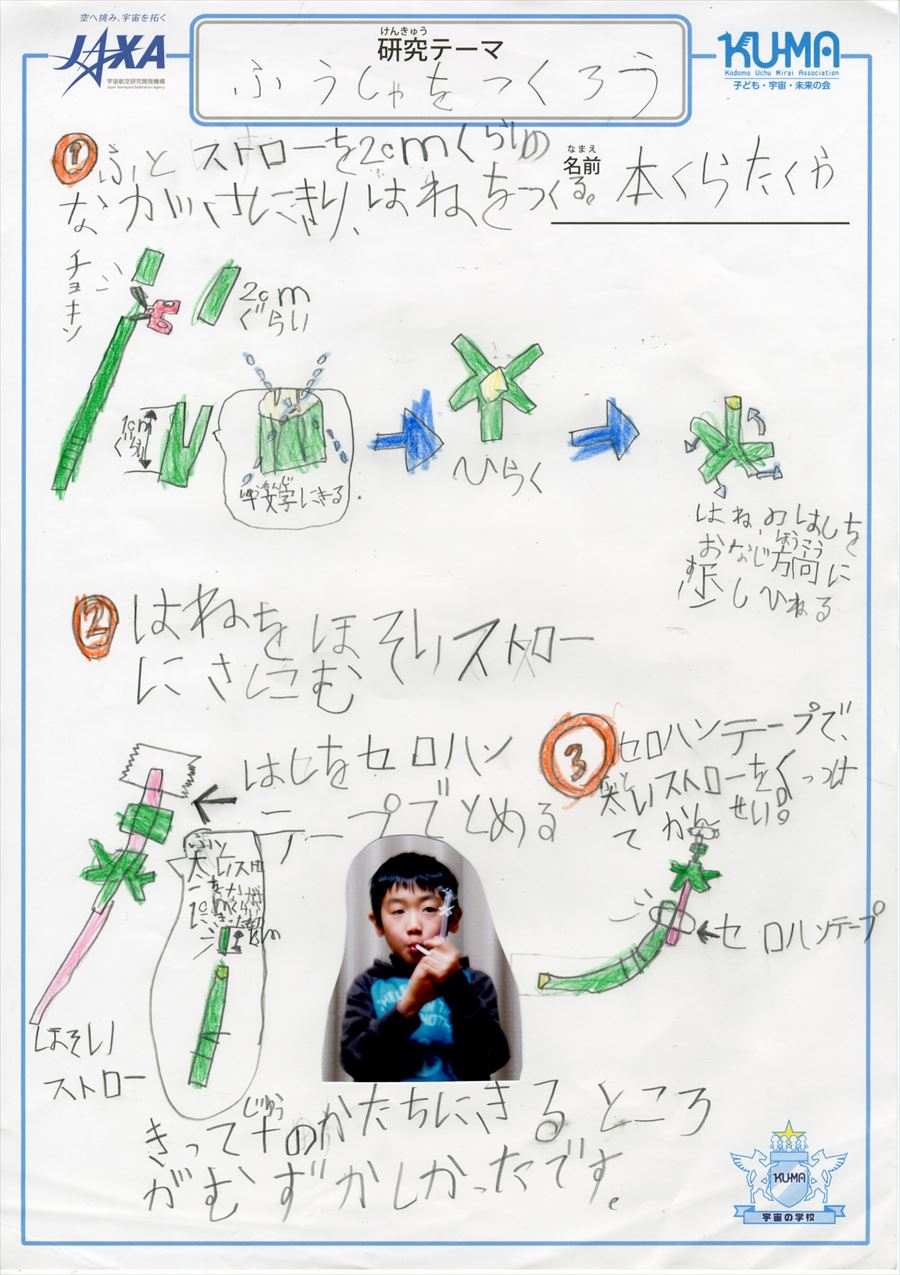 空へ挑み、宇宙を拓く
JAXA
宇宙航空研究開発機構
Japan Aerospace Exploration Agency
けんきゅう
研究テーマ
ふうしゃをつくろう
KU-MA
Kodomo Uchu Mirai Association
子ども・宇宙・未来の会
なまえ
名前
本くらたくや
① ふとストローを2cmくらいの
ながさにきり、はねをつくる。
チョキン
2cm
ぐらい
1cm
ぐらい
十文字にきる
ひらく
はねのはしを
おなじ方向に
ほうこう
少しひねる
すこ
② はねをほそいストロー
にさしこむ
はしをセロハン
テープでとめる
ほそい
ストロー
③ セロハンテープで、
太いストローをくっつけ
ふと
てかんせい。
←セロハンテープ
じゅう
きって十のかたちにきるところ
がむずかしかったです。
KU-MA
宇宙の学校